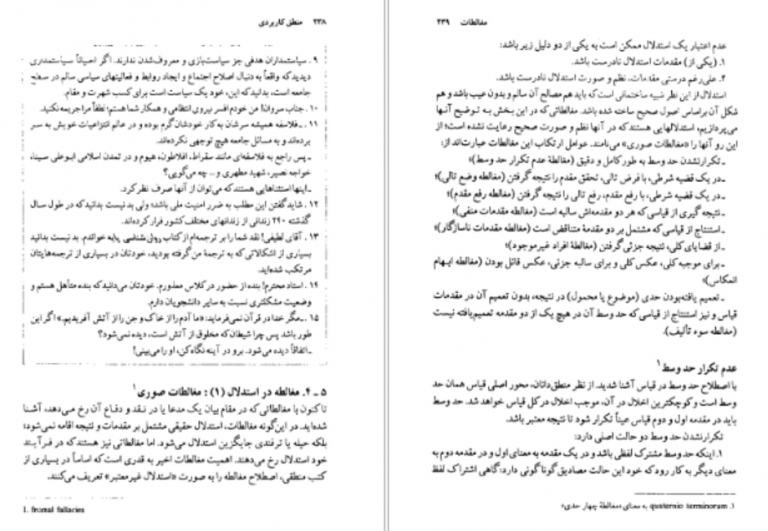 ۲۳۸ منطق کاربردی
۹ ـ سیاستمداران هدفی جز سیاست‌بازی و معروف‌شدن ندارند. اگر احیاناً سیاستمداری
دیدید که واقعاً به دنبال اصلاح اجتماع و ایجاد روابط و فعالیتهای سیاسی سالم در سطح
جامعه است، بدانید که این، خود یک سیاست است برای کسب شهرت و مقام.
۱۰ ـ جناب سروان! من خودم افسر نیروی انتظامی و همکار شما هستم؛ لطفاً مرا جریمه نکنید.
۱۱ ـ ـ فلاسفه همیشه سرشان به کار خودشان گرم بوده و در عالم انتزاعیات خویش به سر
برده‌اند و به مسائل جامعه هیچ توجهی نکرده‌اند.
ـ پس راجع به فلاسفه‌ای مانند سقراط، افلاطون، هیوم و در تمدن اسلامی ابوعلی سینا،
خواجه نصیر، شهید مطهری و... چه می‌گویی؟
ـ اینها استثناهایی هستند که می‌توان از آنها صرف نظر کرد.
۱۲ ـ شاید گفتن این مطلب به ضرر امنیت ملی باشد؛ ولی بد نیست بدانید که در طول سال
گذشته ۲۴۰ زندانی از زندانهای مختلف کشور فرار کرده‌اند.
۱۳ ـ آقای لطیفی! نقد شما را بر ترجمه‌ام از کتاب روش‌شناسی پایه خواندم. بد نیست بدانید
بسیاری از اشکالاتی که به ترجمهٔ من گرفته بودید، خودتان در بسیاری از ترجمه‌هایتان
مرتکب شده‌اید.
۱۴ ـ استاد محترم! بنده از حضور در کلاس معذورم. خودتان می‌دانید که بنده متأهل هستم و
وضعیت مشکلتری نسبت به سایر دانشجویان دارم.
۱۵ ـ ـ مگر خدا در قرآن نمی‌فرماید: «ما آدم را از خاک و جن را از آتش آفریدیم.» اگر این
طور باشد پس چرا شیطان که مخلوق از آتش است، دیده نمی‌شود؟
ـ اتفاقاً دیده می‌شود. برو در آینه نگاه کن، او را می‌بینی!
۵ ـ ۴. مغالطه در استدلال (۱) : مغالطات صوری۱
تاکنون با مغالطاتی که در مقام بیان یک مدعا یا در نقد و دفاع آن رخ می‌دهد، آشنا
شده‌اید. در این‌گونه مغالطات، استدلال حقیقی مشتمل بر مقدمات و نتیجه اقامه نمی‌شود؛
بلکه حیله یا ترفندی جایگزین استدلال می‌شود. اما مغالطاتی نیز هستند که در فرآیند
خود استدلال رخ می‌دهند. اهمیت مغالطات اخیر به قدری است که اساساً در بسیاری از
کتب منطقی، اصطلاح مغالطه را به صورت «استدلال غیرمعتبر» تعریف می‌کنند.
1. fromal fallacies
مغالطات ۲۳۹
عدم اعتبار یک استدلال ممکن است به یکی از دو دلیل زیر باشد:
۱. (یکی از) مقدمات استدلال نادرست باشد.
۲. علی‌رغم درستی مقدمات، نظم و صورت استدلال نادرست باشد.
استدلال از این نظر شبیه ساختمانی است که باید هم مصالح آن سالم و بدون عیب باشد و هم
شکل آن براساس اصول صحیح ساخته شده باشد. مغالطاتی که در این بخش به توضیح آنها
می‌پردازیم، استدلالهایی هستند که در آنها نظم و صورت صحیح رعایت نشده است؛ از
این رو آنها را «مغالطات صوری» می‌نامند. عوامل ارتکاب این مغالطات عبارت‌اند از:
ـ تکرارنشدن حد وسط به طور کامل و دقیق (مغالطهٔ عدم تکرار حد وسط)؛
ـ در یک قضیه شرطی، با فرض تالی، تحقق مقدم را نتیجه گرفتن (مغالطه وضع تالی)؛
ـ در یک قضیه شرطی، با رفع مقدم، رفع تالی را نتیجه گرفتن (مغالطه رفع مقدم)؛
ـ نتیجه گیری از قیاسی که هر دو مقدمه‌اش سالبه است (مغالطه مقدمات منفی)؛
ـ استنتاج از قیاسی که مشتمل بر دو مقدمهٔ متناقض است (مغالطه مقدمات ناسازگار)؛
ـ از قضایای کلی، نتیجه جزئی گرفتن (مغالطهٔ افراد غیرموجود)؛
ـ برای موجبه کلی، عکس کلی و برای سالبه جزئی، عکس قائل بودن (مغالطه ایهام
انعکاس)؛
ـ تعمیم یافته‌بودن حدی (موضوع یا محمول) در نتیجه، بدون تعمیم آن در مقدمات
قیاس و نیز استنتاج از قیاسی که حد وسط آن در هیچ یک از دو مقدمه تعمیم‌یافته نیست
(مغالطه سوء تألیف).
عدم تکرار حد وسط۱
با اصطلاح حد وسط در قیاس آشنا شدید. از نظر منطق‌دانان، محور اصلی قیاس همان حد
وسط است و کوچکترین اخلال در آن، موجب اخلال در کل قیاس خواهد شد. حد وسط
باید در مقدمه اول و دوم قیاس عیناً تکرار شود تا نتیجه معتبر باشد.
تکرارنشدن حد وسط دو حالت اصلی دارد:
۱. اینکه حد وسط مشترک لفظی باشد و در یک مقدمه به معنای اول و در مقدمه دوم به
معنای دیگر به کار رود که خود این حالت مصادیق گوناگونی دارد: گاهی اشتراک لفظ
۱. quaternio terminorum به معنای «مغالطهٔ چهار حدی»